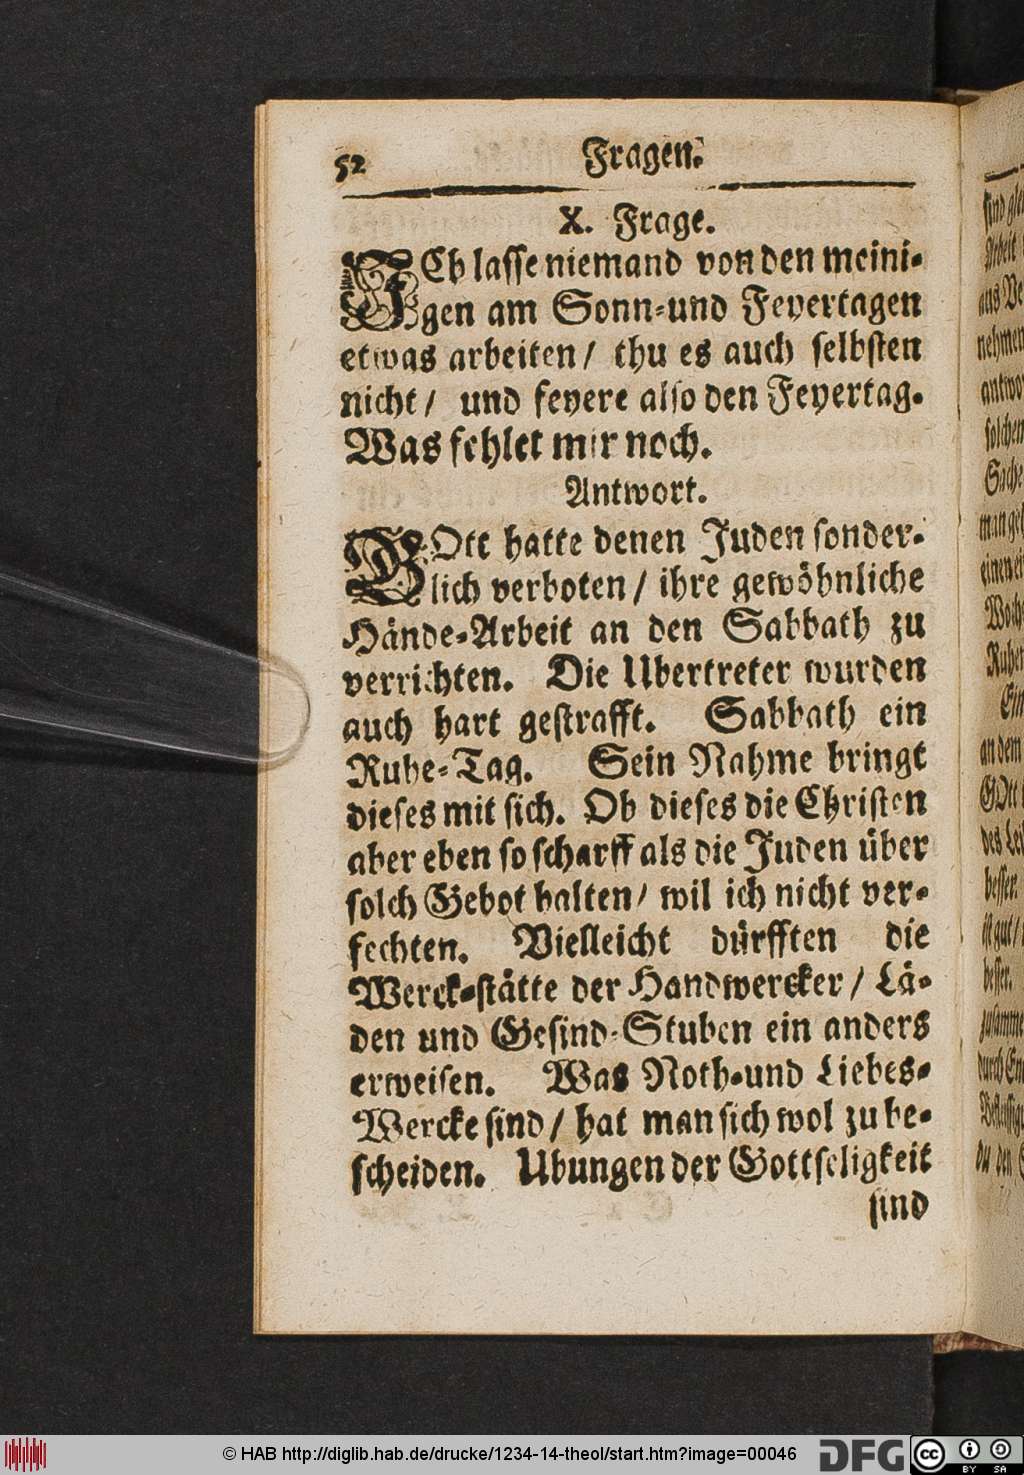 52 Fragen.
X. Frage.
ICh lasse niemand von den meini-
gen am Sonn-und Feyertagen
etwas arbeiten / thu es auch selbsten
nicht / und feyere also den Feyertag.
Was fehlet mir noch.
Antwort.
GOtt hatte denen Juden sonder-
lich verboten / ihre gewöhnliche
Hände-Arbeit an den Sabbath zu
verrichten. Die Ubertreter wurden
auch hart gestrafft. Sabbath ein
Ruhe-Tag. Sein Nahme bringt
dieses mit sich. Ob dieses die Christen
aber eben so scharff als die Juden über
solch Gebot halten / wil ich nicht ver-
fechten. Vielleicht dürfften die
Werck-stätte der Handwercker / Lä-
den und Gesind-Stuben ein anders
erweisen. Was Noth-und Liebes-
Wercke sind / hat man sich wol zu be-
scheiden. Ubungen der Gottseligkeit
sind
sind
Arbeit
aus
nehmen
solchen
Sache
Ruhe
an dem
GOtt
besser.
ist gut /
besser.
du den
© HAB http://diglib.hab.de/drucke/1234-14-theol/start.htm?image=00046
DFG
cc
BY SA